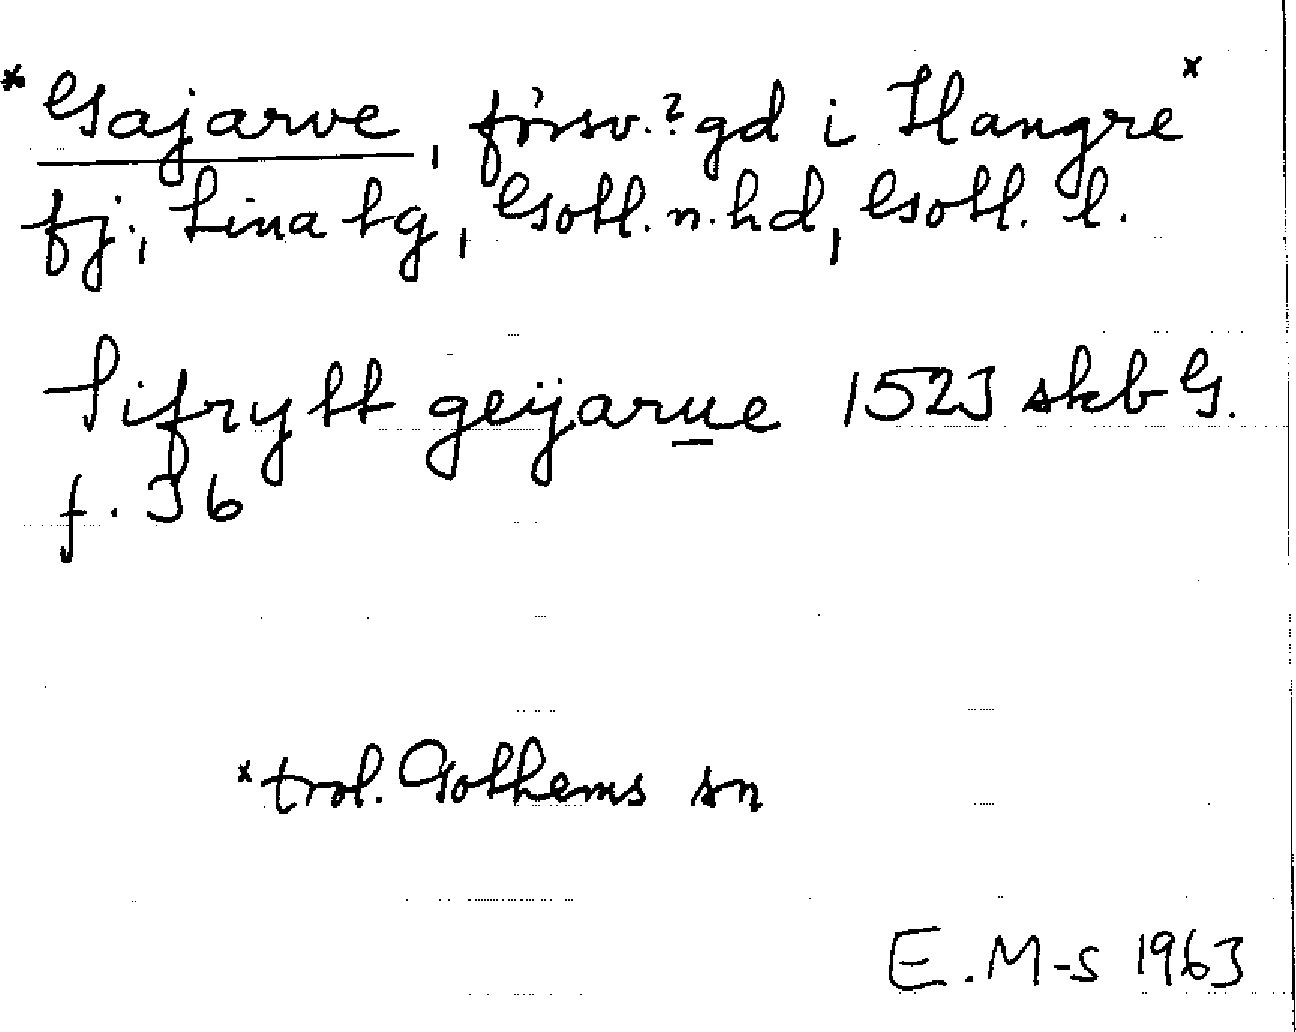 * Gajarve, försv.? gd i Hangre x
fj., Lina tg, Gotl. n. hd, Gotl. l.
Sifrytt geijarue 1523 skb G.
f. 3 b
x trol. Gothems sn
E. M-s 1963